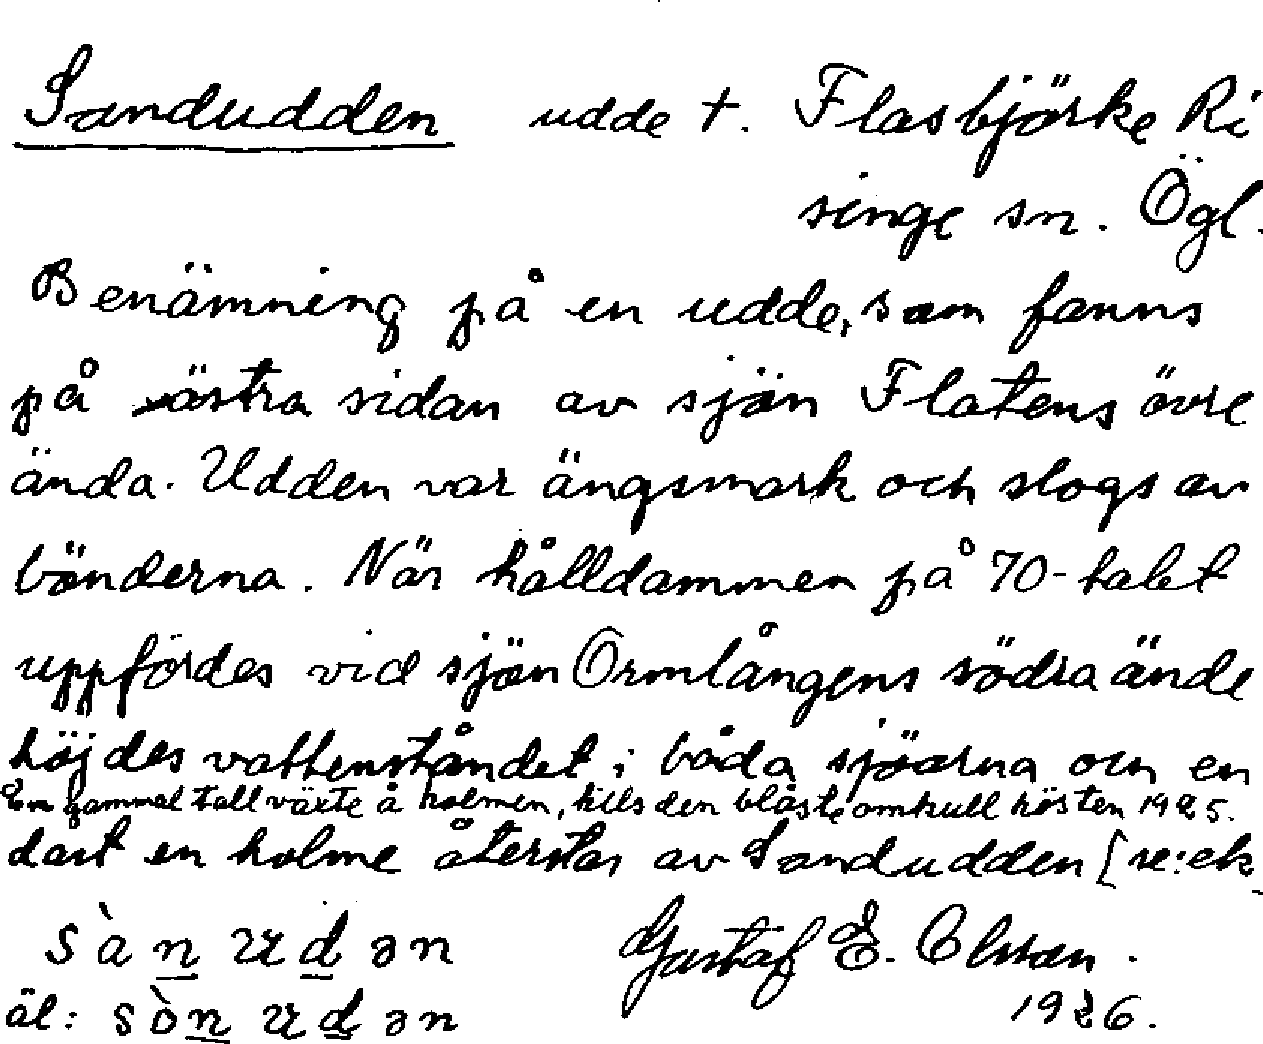 Sandudden udde t. Flasbjörke Ri
singe sn. Ögl.
Benämning på en udde, som fanns
på västra sidan av sjön Flatens övre
ända. Udden var ängsmark och slogs av
bönderna. När hålldammen på 70-talet
uppfördes vid sjön Ormlångens södra ände
höjdes vattenståndet i båda sjöarna och en
En gammal tall växte å holmen, tills den blåste omkull hösten 1925.
dast en holme återstår av Sandudden [se: ek
sànudən Gustaf E. Olsson.
äl: sònudən 1926.